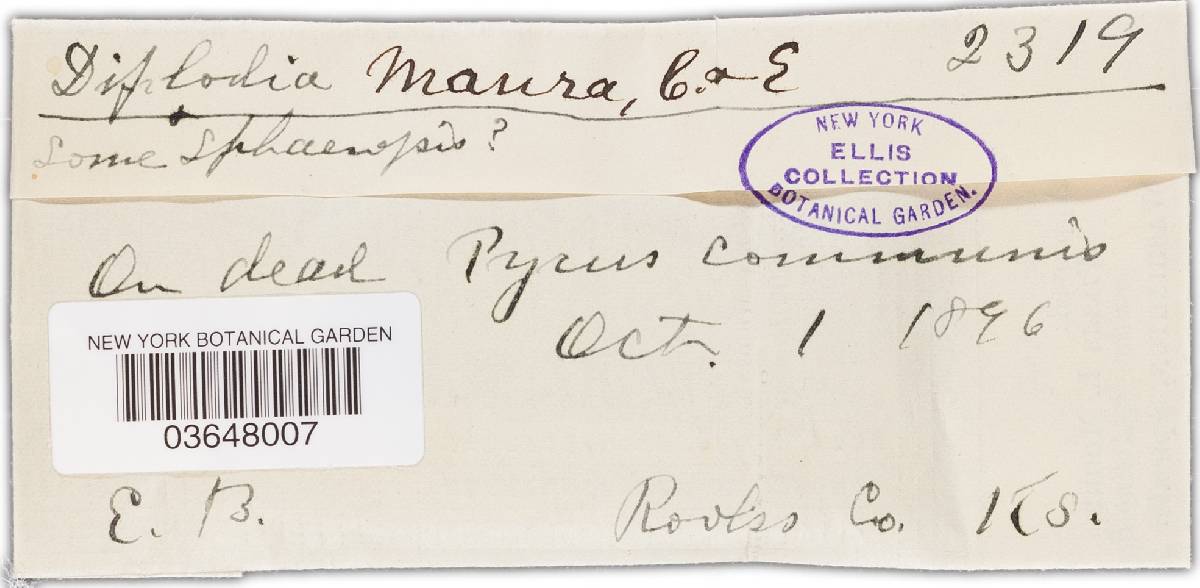 Diplodia Maura, C. & E 2319
some Sphaeropsis?
NEW YORK
ELLIS
COLLECTION
BOTANICAL GARDEN.
On dead Pyrus communis
Oct. 1 1896
NEW YORK BOTANICAL GARDEN
03648007
E. B. Rooks Co. Ks.